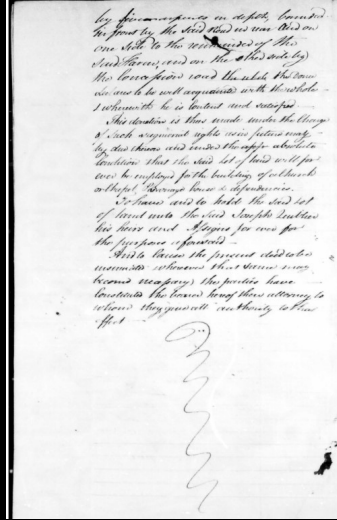 by five arpents in depth, bounded
in front by the said Road in rear and on
one side to the remainder of the
said Farm, and on the other side by
the Concession road the whole the Dona
declares to be well acquainted with the whole
wherewith he is content and satisfied
This donation is thus made under the Charge
of such seigniorial rights as in future may
by due thereon and under the express absolute
Condition that the said lot of land will for
ever be employed for the building of a Church
or Chapel, Parsonage house & dependencies.
To have and to hold the said lot
of land unto the said Joseph
his heirs and Assigns for ever for
the purpose aforesaid
And to cause the present deed to be
insinuated wherever that same may
become necessary the parties have
Constituted the bearer hereof their attorney to
whom they give all authority to that
effect